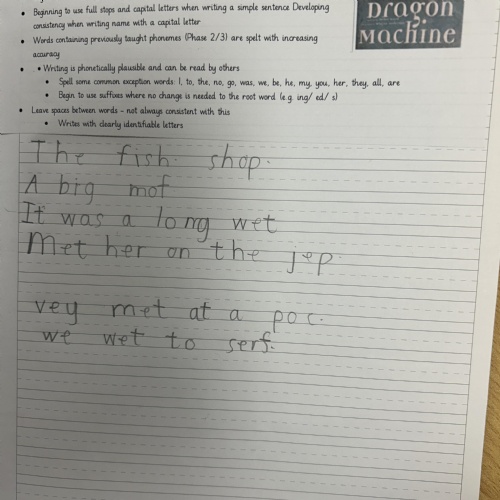 Beginning to use full stops and capital letters when writing a simple sentence Developing
consistency when writing name with a capital letter
Words containing previously taught phonemes (Phase 2/3) are spelt with increasing
accuracy
• Writing is phonetically plausible and can be read by others
Spell some common exception words: I, to, the, no, go, was, we, be, he, my, you, her, they, all, are
Begin to use suffixes where no change is needed to the root word (e.g. ing/ ed/ s)
Leave spaces between words – not always consistent with this
Writes with clearly identifiable letters
DRAGON
MACHINE
The fish. shop.
A big mof
It was a long wet
Met her on the jep.
vey met at a poc.
we wet to serf.